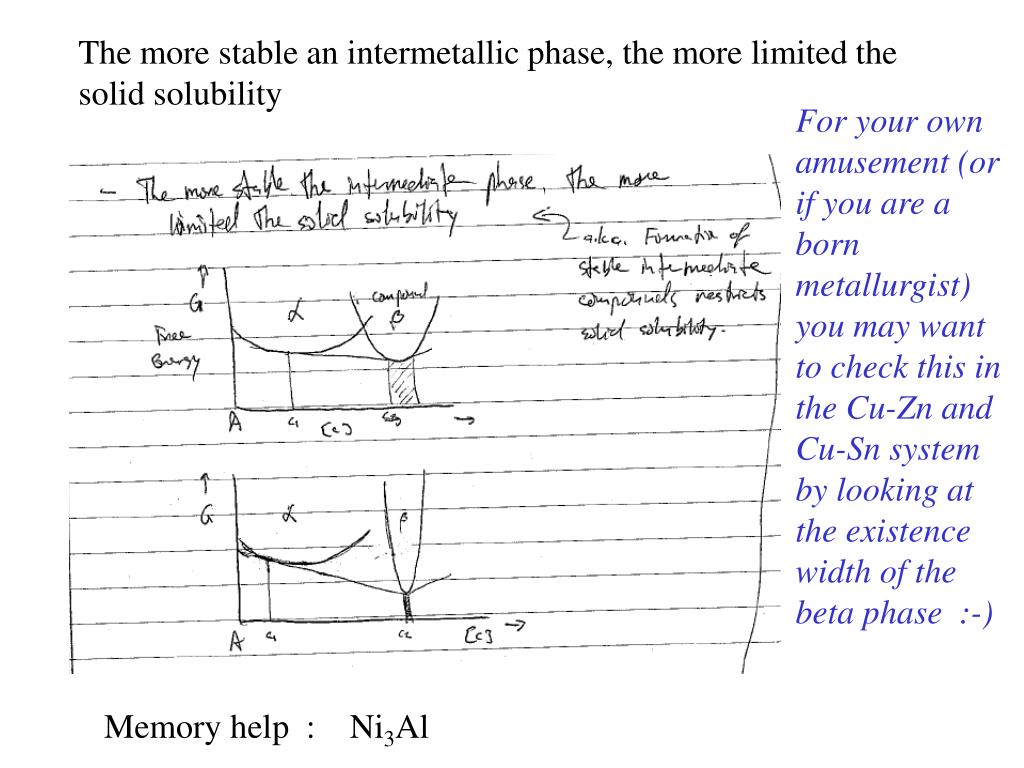 The more stable an intermetallic phase, the more limited the
solid solubility
For your own
amusement (or
if you are a
born
metallurgist)
you may want
to check this in
the Cu-Zn and
Cu-Sn system
by looking at
the existence
width of the
beta phase :-)
- The more stable the intermediate phase, the more
limited the solid solubility
a.k.a. Formation of
stable intermediate
compounds restricts
solid solubility.
G
Free
Energy
α
compound
β
A
c₁
[c]
G
α
β
A
c₁
c₂
[c]
Memory help : Ni₃Al